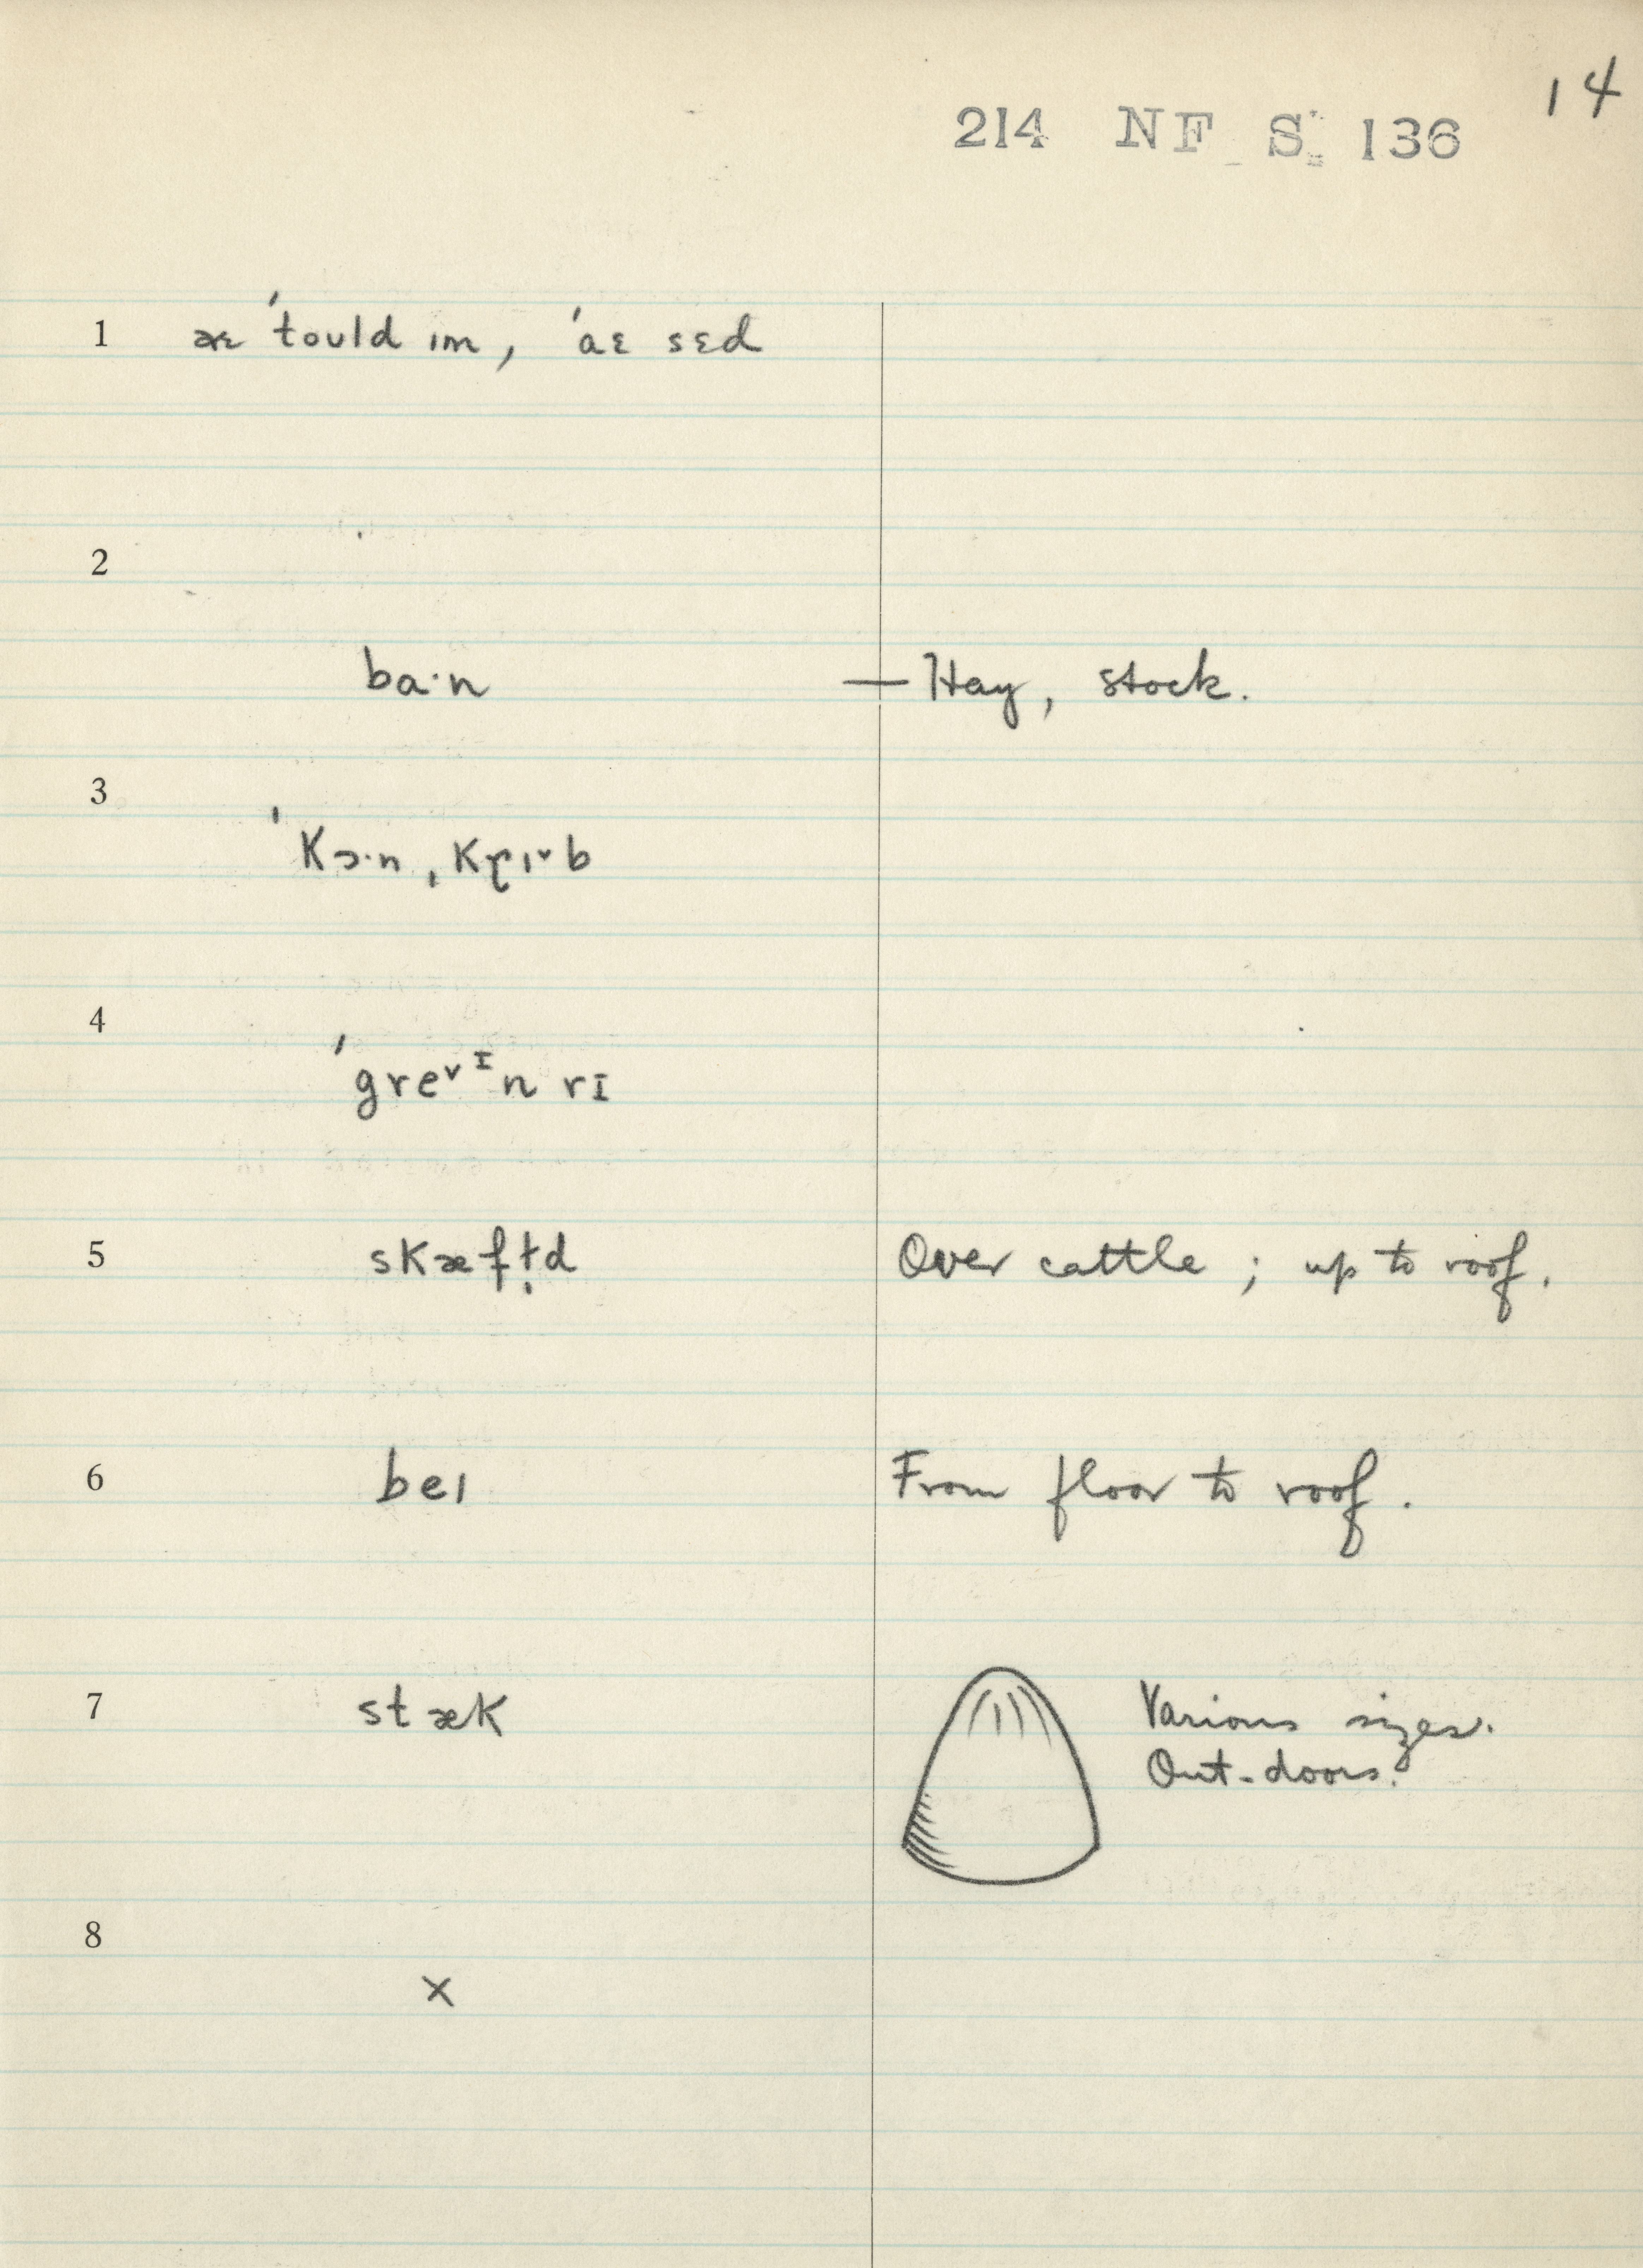 14
214 NF S. 136
1 æɛ ˈtould ɪm, ˈaɛ sɛd
2
ba·n — Hay, stock.
3
ˈkɔ·n ˌkɽɪ˅b
4
ˈgre˅ᶦn rɪ
5 skæfɫ̩d Over cattle; up to roof.
6 beɪ From floor to roof.
7 stæk Various sizes.
Out-doors.
8
x